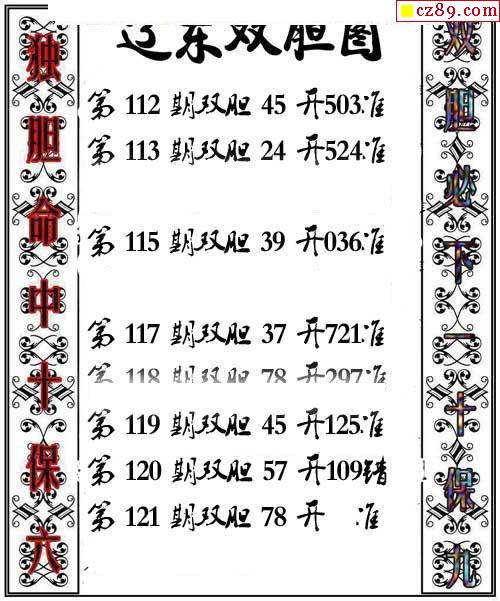 cz89.com
辽东双胆图
独胆命中十保六
第 112 期双胆 45 开503准
第 113 期双胆 24 开524准
第 115 期双胆 39 开036准
第 117 期双胆 37 开721准
第 118 期双胆 78 开297准
第 119 期双胆 45 开125准
第 120 期双胆 57 开109错
第 121 期双胆 78 开 准
双胆必下一十保九